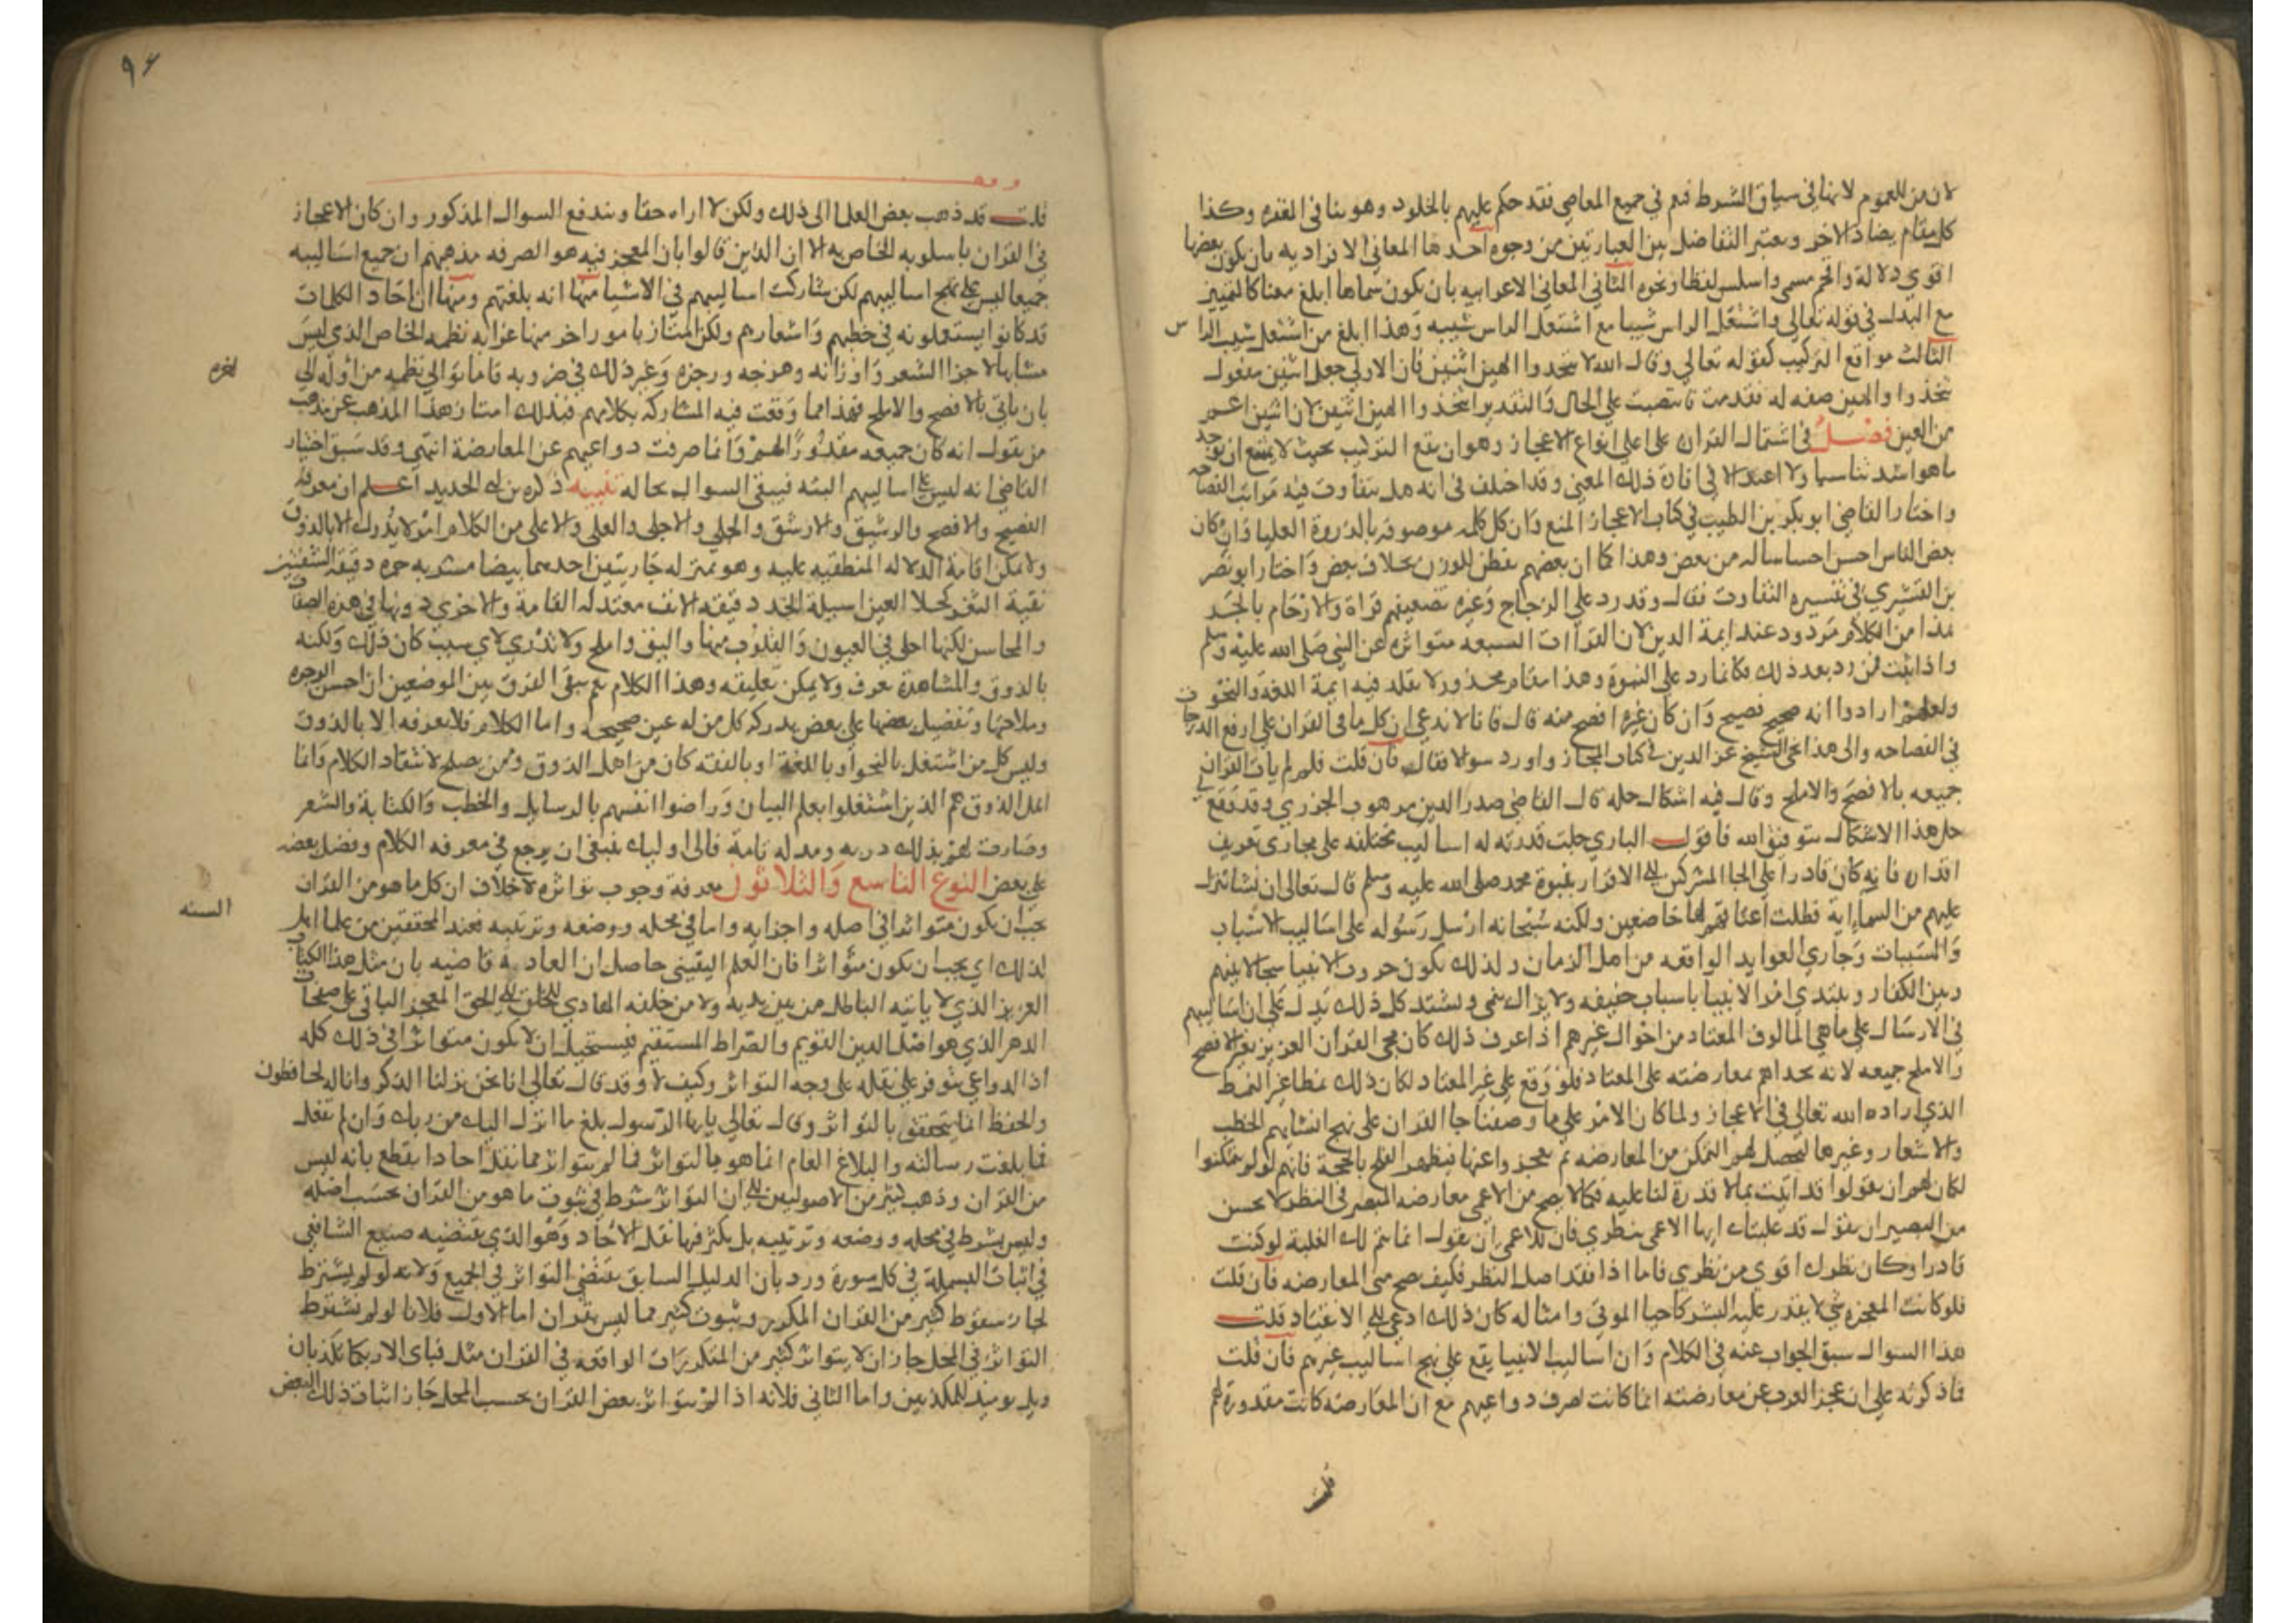 لان من للعموم لانها في سياق الشرط فيعم في جميع المعاصي فقد حكم عليهم بالخلود وهو ينافي المغفرة وكذا
كل مقام يضاد الاخر ويعتبر التفاضل بين العبارتين من وجوه احدها المعاني الافرادية بان يكون بعضها
اقوي دلالة وافخم مسمى واسلس لفظا ونحوه الثاني المعاني الاعرابيه بان يكون مسماها ابلغ معنا كالتمييز
مع البدل في قوله تعالي واشتعل الراس شيبا مع اشتعل الراس شيبه وهذا ابلغ من اشتعل شيب الراس
الثالث مواقع التركيب كقوله تعالي وقال الله لا تتخذوا الهين اثنين فان الاولي جعل اثنين مفعول
تتخذوا والهين صفه له تقدمت فانتصبت علي الحال والتقدير اتخذوا الهين اثنين لان اثنين اعم
من الهين فصل في اشتمال القران على اعلى انواع الاعجاز وهو ان يقع التركيب بحيث لا يمتنع ان يوجد
ما هو اشد تناسبا ولا اعتدالا في افادة ذلك المعنى وقد اختلف في انه هل تتفاوت فيه مراتب الفصاحه
واختار القاضي ابو بكر بن الطيب في كتاب الاعجاز المنع وان كل كلمه موصوفه بالذروة العليا وان كان
بعض الناس احسن احساسا له من بعض وهذا كما ان بعضهم يفطن للوزن بخلاف بعض واختار ابو نصر
بن القشيري في تفسيره التفاوت فقال وقد رد علي الزجاج وغيره تضعيفهم قراة والارحام بالجر
هذا من الكلام مردود عند ايمة الدين لان القراات السبعه متواتره عن النبي صلى الله عليه وسلم
واذا ثبت فمن رد بعد ذلك فكانما رد علي النبوة وهذا مقام محذور لا يقلد فيه ايمة اللغه والنحو
ولعلهم ارادوا انه صحيح فصيح وان كان غيره افصح منه قال فانا لا ندعي ان كل ما في القران علي ارفع الدرجات
في الفصاحه والى هذا نحى الشيخ عز الدين في كتاب المجاز واورد سولا فقال فان قلت فلم لم يات القران
جميعه بالافصح والاملح وقال فيه اشكال حله قال القاضي صدر الدين موهوب الجزري وقد وقع
حل هذا الاشكال بتوفيق الله فاقول الباري جلت قدرته له اساليب مختلفه على مجاري تعريف
اقداره فانه كان قادرا على الجا المشركين الى الاقرار بنبوة محمد صلى الله عليه وسلم قال تعالى ان نشا ننزل
عليهم من السماء اية فظلت اعناقهم لها خاضعين ولكنه سبحانه ارسل رسوله على اساليب الاسباب
والمسببات وجاري العوايد الواقعه من اهل الزمان ولذلك يكون حروب الانبيا سجالا بينهم
وبين الكفار ويبتدي امر الانبيا باسباب خفيفه ولا يزال ينمي ويشتد كل ذلك يدل على ان اساليبهم
في الارسال على ما هي المالوف المعتاد من احوال غيرهم اذا عرف ذلك كان مجي القران العزيز بغير الافصح
والاملح جميعه لانه تحداهم بمعارضته على المعتاد فلو وقع على غير المعتاد لكان ذلك نمطا غير النمط
الذي اراده الله تعالي في الاعجاز ولما كان الامر علي ما وصفنا جا القران على نهج انشايهم الخطب
والاشعار وغيرها ليحصل لهم التمكن من المعارضه ثم يعجزوا عنها فيظهر الفلج بالحجة فانهم لو لم يتمكنوا
لكان لهم ان يقولوا قد اتيت بما لا قدرة لنا عليه فكما لا يصح من الاعمى معارضه المبصر في النظر لا يحسن
من البصير ان يقول قد غلبتك ايها الاعمى بنظري فان للاعمى ان يقول انما تتم لك الغلبة لو كنت
قادرا وكان نظرك اقوي من نظري فاما اذا فقد اصل النظر فكيف صح مني المعارضه فان قلت
فلو كانت المعجزه شي لا يقدر عليه البشر كاحيا الموتى وامثاله كان ذلك ادعى الى الانقياد قلت
هذا السوال سبق الجواب عنه في الكلام وان اساليب الانبيا يقع على نهج اساليب غيرهم فان قلت
فاذكرته على ان عجز العرب عن معارضته انما كانت لصرف دواعيهم مع ان المعارضه كانت مقدورة لهم
قلت
قلت قد ذهب بعض العلما الى ذلك ولكن لا اراه حقا ويندفع السوال المذكور وان كان الاعجاز
في القران باسلوبه الخاص به الا ان الذين قالوا بان المعجز فيه هو الصرفه مذهبهم ان جميع اساليبه
جميعا ليس على نهج اساليبهم لكن شاركت اساليبهم في الاشيا منها انه بلغتهم ومنها ان احاد الكلمات
قد كانوا يستعملونه في خطبهم واشعارهم ولكن امتاز بامور اخر منها غرابه نظمه الخاص الذي ليس
مشابها لاجزا الشعر واوزانه وهزجه ورجزه وغير ذلك في ضروبه فاما توالي نظمه من اوله الى
اخره
بان ياتي بالافصح والاملح فهذا مما وقعت فيه المشاركه بكلامهم فبذلك امتاز هذا المذهب عن مذهب
من يقول انه كان جميعه مقدورا لهم وانما صرفت دواعيهم عن المعارضة انتهى وقد سبق اختيار
القاضي انه ليس على اساليبهم البته فيبقى السوال بحاله تنبيه ذكره بن ابي الحديد اعلم ان معرفه
الفصيح والافصح والرشيق والارشق والجلي والاجلى والعلى والاعلى من الكلام امر لا يدرك الا بالذوق
ولا يمكن اقامة الدلاله المنطقيه عليه وهو بمنزله جاريتين احدهما بيضا مشربه حمره دقيقة الشفتين
نقية الثغر كحلا العين اسيلة الخد دقيقه الانف معتدله القامة والاخري دونها في هذه الصفات
والمحاسن لكنها احلى في العيون والقلوب منها واليق واملح ولا ندري لاي سبب كان ذلك ولكنه
بالذوق والمشاهدة يعرف ولا يمكن تعليقه وهذا الكلام نعم يبقى الفرق بين الموضعين ان حسن الوجوه
وملاحتها وتفضيل بعضها على بعض يدركه كل من له عين صحيحه واما الكلام فلا يعرفه الا بالذوق
وليس كل من اشتغل بالنحو او باللغة او بالفقه كان من اهل الذوق وممن يصلح لانتقاد الكلام وانما
اهل الذوق هم الذين اشتغلوا بعلم البيان وراضوا انفسهم بالرسايل والخطب والكتابة والشعر
وصارت لهم بذلك دربه وملكه تامة فالى اوليك ينبغي ان يرجع في معرفه الكلام وفضل بعضه
على بعض النوع التاسع والثلاثون معرفة وجوب تواتره لا خلاف ان كل ما هو من القران
يجب ان يكون متواترا في اصله واجزايه واما في محله ووضعه وترتيبه فعند المحققين من علما اهل
السنه
كذلك اي يجب ان يكون متواترا فان العلم اليقيني حاصل ان العادة قاضيه بان مثل هذا الكتاب
العزيز الذي لا ياتيه الباطل من بين يديه ولا من خلفه الهادي للخلق الى الحق المعجز الباقي على صفحات
الدهر الذي هو اصل الدين القويم والصراط المستقيم فيستحيل ان لا يكون متواترا في ذلك كله
اذ الدواعي تتوفر على نقله على وجه التواتر وكيف لا وقد قال تعالي انا نحن نزلنا الذكر وانا له لحافظون
والحفظ انما يتحقق بالتواتر وقال تعالي يا ايها الرسول بلغ ما انزل اليك من ربك وان لم تفعل
فما بلغت رسالته والبلاغ العام انما هو بالتواتر فما لم يتواتر مما نقل احادا يقطع بانه ليس
من القران وذهب كثير من الاصوليين الى ان التواتر شرط في ثبوت ما هو من القران بحسب اصله
وليس بشرط في محله ووضعه وترتيبه بل يكثر فيها نقل الاحاد وهو الذي يقتضيه صنيع الشافعي
في اثبات البسملة في كل سورة ورد بان الدليل السابق يقتضى التواتر في الجميع ولانه لو لم يشترط
لجاز سقوط كثير من القران المكرر وثبوت كثير مما ليس بقران اما الاول فلانا لو لم نشترط
التواتر في المحل جاز ان لا يتواتر كثير من المتكررات الواقعه في القران مثل فباى الا ربكما تكذبان
وويل يوميذ للمكذبين واما الثاني فلانه اذا لم يتواتر بعض القران بحسب المحل جاز اثبات ذلك البعض